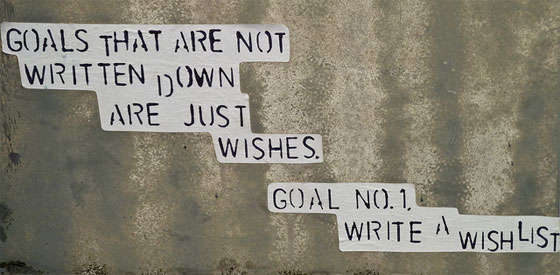 GOALS THAT ARE NOT
WRITTEN DOWN
ARE JUST
WISHES.
GOAL NO.1,
WRITE A WISHLIST